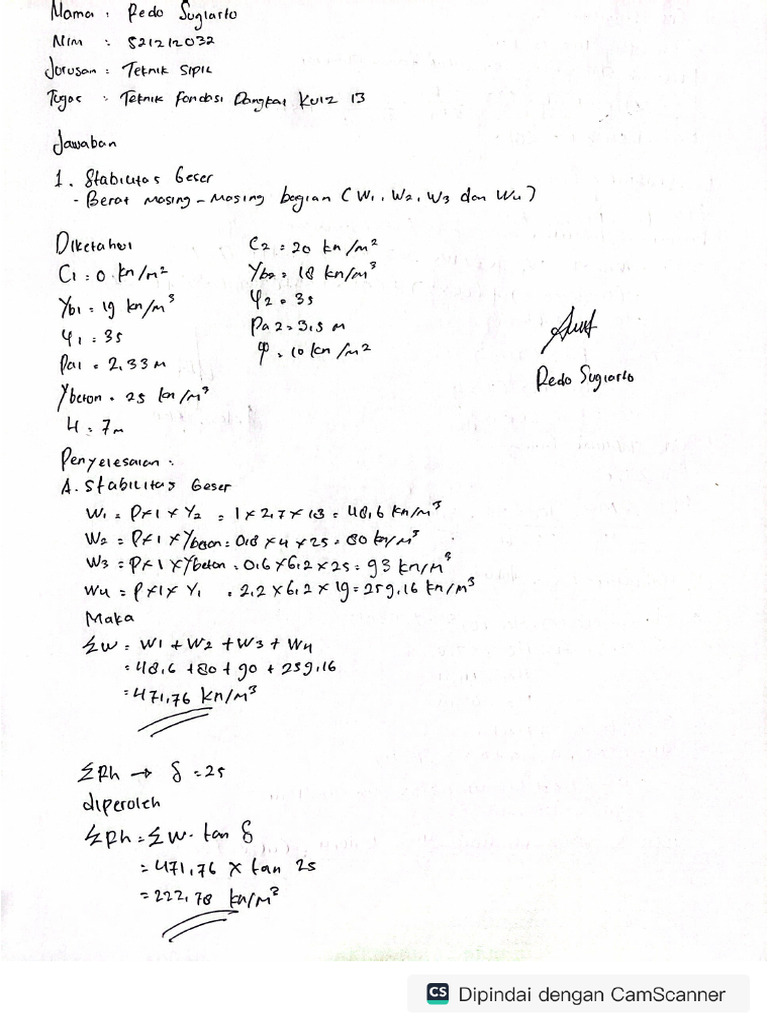 Nama : Redo Sugiarto
Nim : 521212032
Jurusan : Teknik Sipil
Tugas : Teknik Fondasi Dangkal Kuiz 13
Jawaban
1. Stabilitas Geser
- Berat masing-masing bagian (W1, W2, W3 dan W4)
Diketahui
C1 = 0 kn/m²
γb1 = 19 kn/m³
φ1 = 35
Pa1 = 2,33 m
γbeton = 25 kn/m³
H = 7m
C2 = 20 kn/m²
γb2 = 18 kn/m³
φ2 = 35
Pa2 = 3,5 m
φ = 10 kn/m²
Redo Sugiarto
Penyelesaian :
A. Stabilitas Geser
W1 = P×1×γ2 = 1×2,7×18 = 48,6 kn/m³
W2 = P×1×γbeton = 0,8×4×25 = 80 kn/m³
W3 = P×1×γbeton = 0,6×6,2×25 = 93 kn/m³
W4 = P×1×γ1 = 2,2×6,2×19 = 259,16 kn/m³
Maka
Σw = W1 + W2 + W3 + W4
= 48,6 + 80 + 90 + 259,16
= 471,76 kn/m³
ΣRh → δ = 25
diperoleh
ΣRh = ΣW. tan δ
= 471,76 × tan 25
= 222,78 kn/m³
CS Dipindai dengan CamScanner